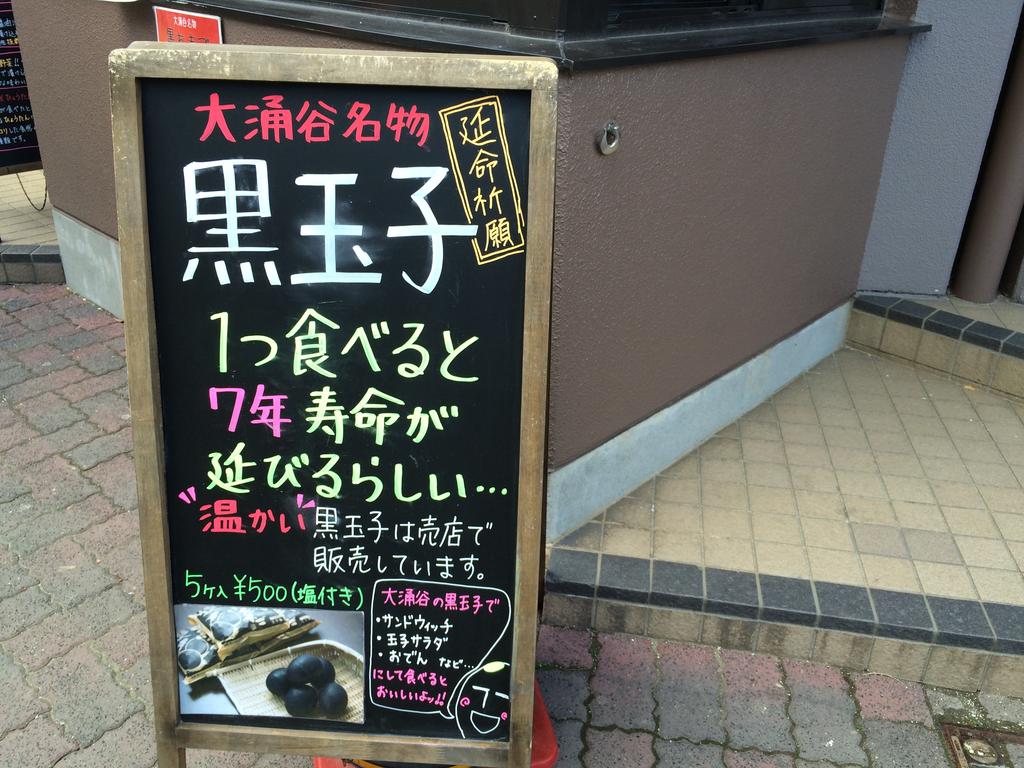 大涌谷名物
大涌谷名物
延命祈願
黒玉子
1つ食べると
7年寿命が
延びるらしい…
"温かい"黒玉子は売店で
販売しています。
5ケ入¥500(塩付き)
大涌谷の黒玉子で
・サンドウィッチ
・玉子サラダ
・おでん など…
にして食べると
おいしいよッ!!